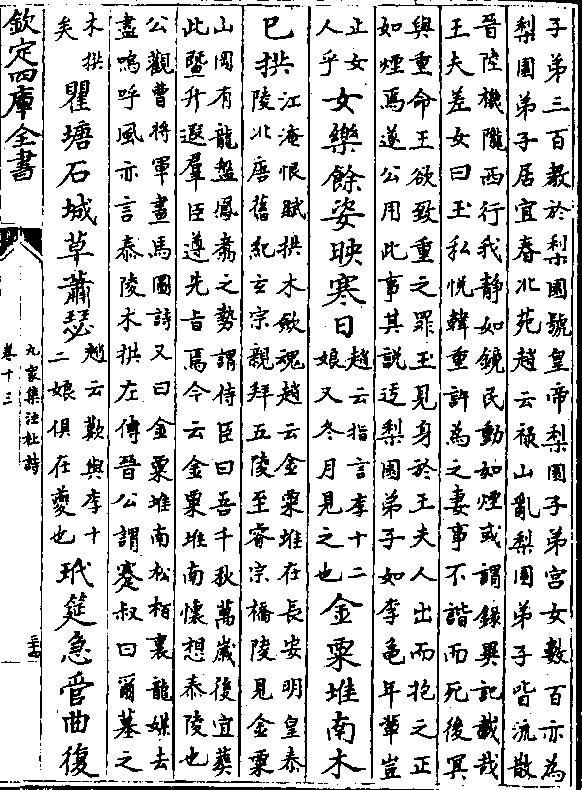 子弟三百教於梨園號皇帝梨園子弟宫女數百亦為
梨園弟子居宜春北苑趙云禄山亂梨園弟子皆流散
晉陸機隴西行我静如鏡民動如煙或謂録異記載哉
王夫差女曰玉私悦韓重許為之妻事不諧而死後冥
與重命王欲致重之罪玉見身於王夫人出而抱之正
如煙焉遂公用此事其説迃梨園弟子如李龜年輩豈
止女人乎女樂餘姿映寒日趙云指言李十二娘又冬月見之也金粟堆南木
已拱江淹恨賦拱木斂魂趙云金粟堆在長安明皇泰
陵北唐舊紀玄宗親拜五陵至睿宗橋陵見金粟
山岡有龍盤鳳翥之勢謂侍臣曰吾千秋萬歲後宜葬
此暨升遐羣臣遵先旨焉今云金粟堆南懷想泰陵也
公觀曹將軍畫馬圖詩又曰金粟堆南松栢裏龍媒去
盡嗚呼風亦言泰陵木拱左傳晉公謂蹇叔曰爾墓之
木拱矣瞿塘石城草蕭瑟趙云歎與李十二娘俱在夔也玳筵急管曲復
欽定四庫全書
九家集注杜詩
卷十三